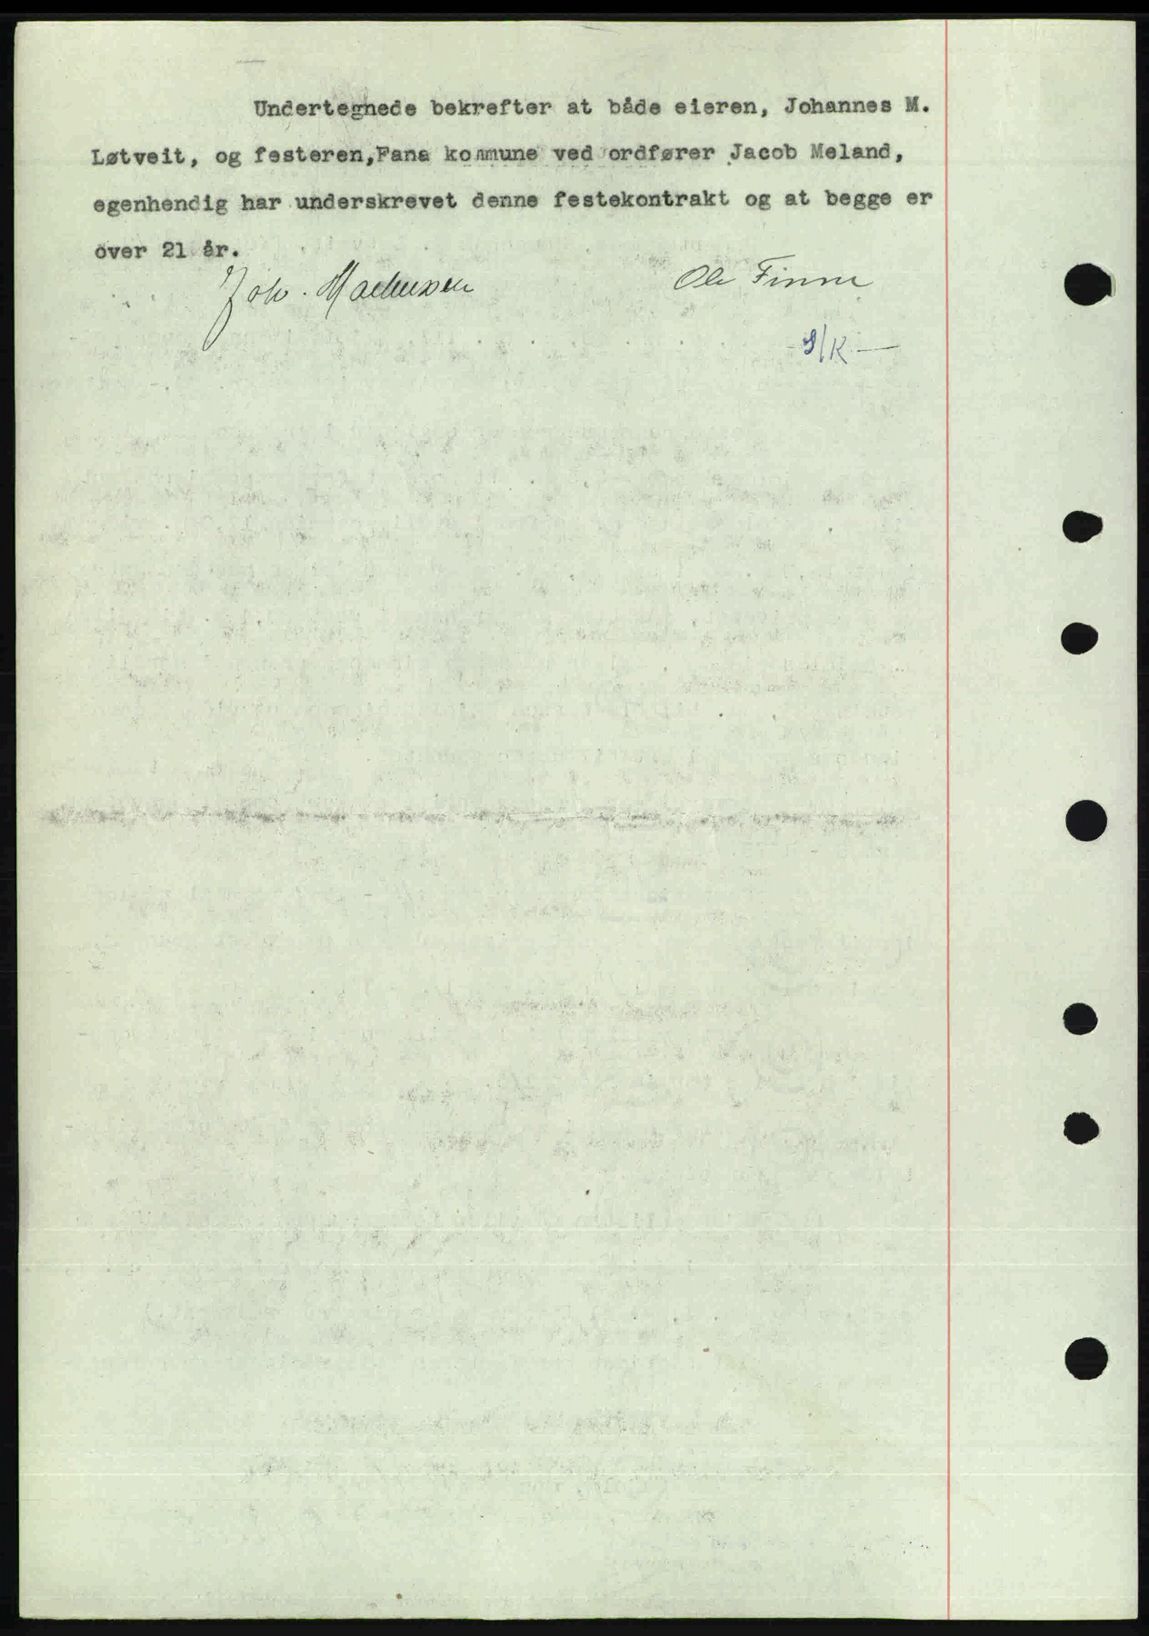 Undertegnede bekrefter at både eieren, Johannes M.
Løtveit, og festeren,Fana kommune ved ordfører Jacob Meland,
egenhendig har underskrevet denne festekontrakt og at begge er
over 21 år.
Joh. Ole Finne
S/K